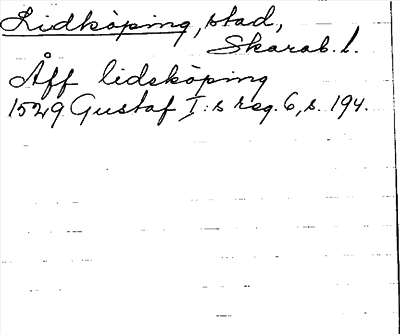 Lidköping, stad,
Skarab. l.
Åff lidsköping
1529 Gustaf I:s reg. 6, s. 194.